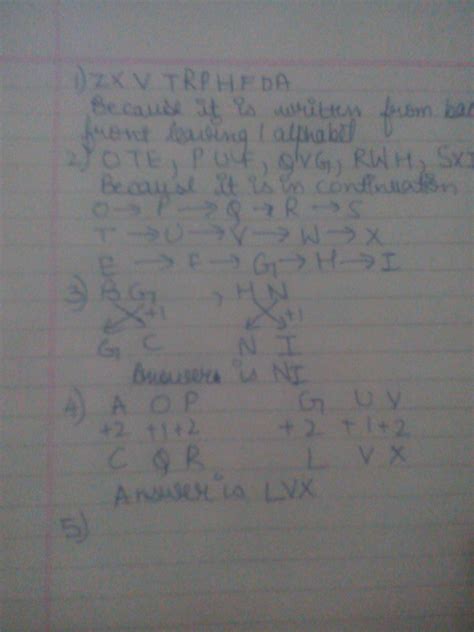 1) ZXV TRPHFDA
Because it is written from bac
front leaving 1 alphabet
2) OTE, PUF, QVG, RWH, SXI
Because it is in continuation
O → P → Q → R → S
T → U → V → W → X
E → F → G → H → I
3) B G , H N
+1 +1
G C N I
Answer is NI
4) A O P G U V
+2 +1 +2 +2 +1 +2
C Q R L V X
Answer is LVX
5)